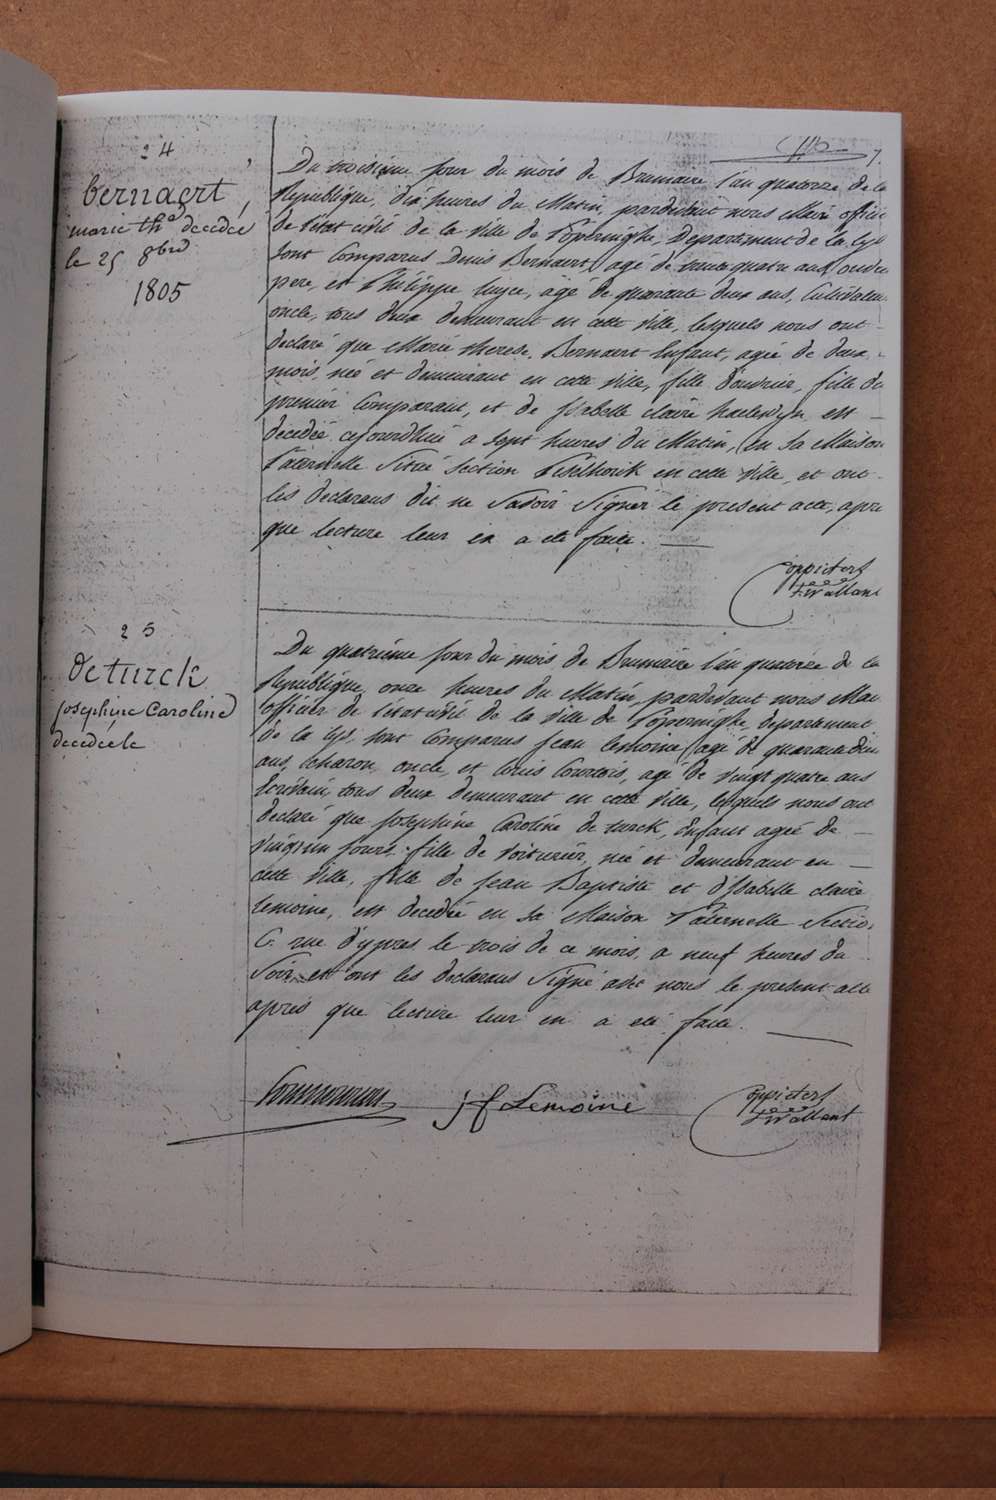 7.
24
bernaert
marie th.a decedée
le 25 8bre
1805
Du troisieme jour du mois de Brumaire l'an quatorze de la
Republique, dix heures du Matin, pardevant nous Maire officier
de l'etat civil de la ville de Poperinghe, Departement de la Lys
sont Comparus Denis Bernaert, agé de trente quatre ans,
pere, et Philippe agé de quarante deux ans, Cultivateur
oncle, tous deux demeurant en cette ville, lesquels nous ont
declaré que Marie therese Bernaert Enfant, agée de deux
mois, née et demeurant en cette ville, fille d'ouvrier, fille du
premier Comparant, et de Isabelle claire est
decedée cejourdhui a sept heures du Matin, en sa Maison
Paternelle Sitée Section en cette ville, et ont
les declarans dit ne Savoir Signer le present acte, apres
que lecture leur en a eté faite.
25
deturck
josephine Caroline
decedée le
Du quatriéme jour du mois de Brumaire l'an quatorze de la
Republique, onze heures du Matin, pardevant nous Maire
officier de l'etat civil de la ville de Poperinghe, departement
de la Lys, sont Comparus jean Lemoine, agé de quarante
ans, charon, oncle, et Louis Courtois, agé de vingt quatre ans
Ecrivain, tous deux demeurant en cette ville, lesquels nous ont
declaré que josephine Caroline de turck, Enfant agée de
vingt un jours, fille de voiturier, née et demeurant en
cette ville, fille de jean Baptiste et d'Isabelle claire
Lemoine, est decedée en sa Maison Paternelle Section
C. rue d'ypres le trois de ce mois, a neuf heures du
Soir, et ont les declarans Signé avec nous le present acte
après que lecture leur en a eté faite.
jf Lemoine